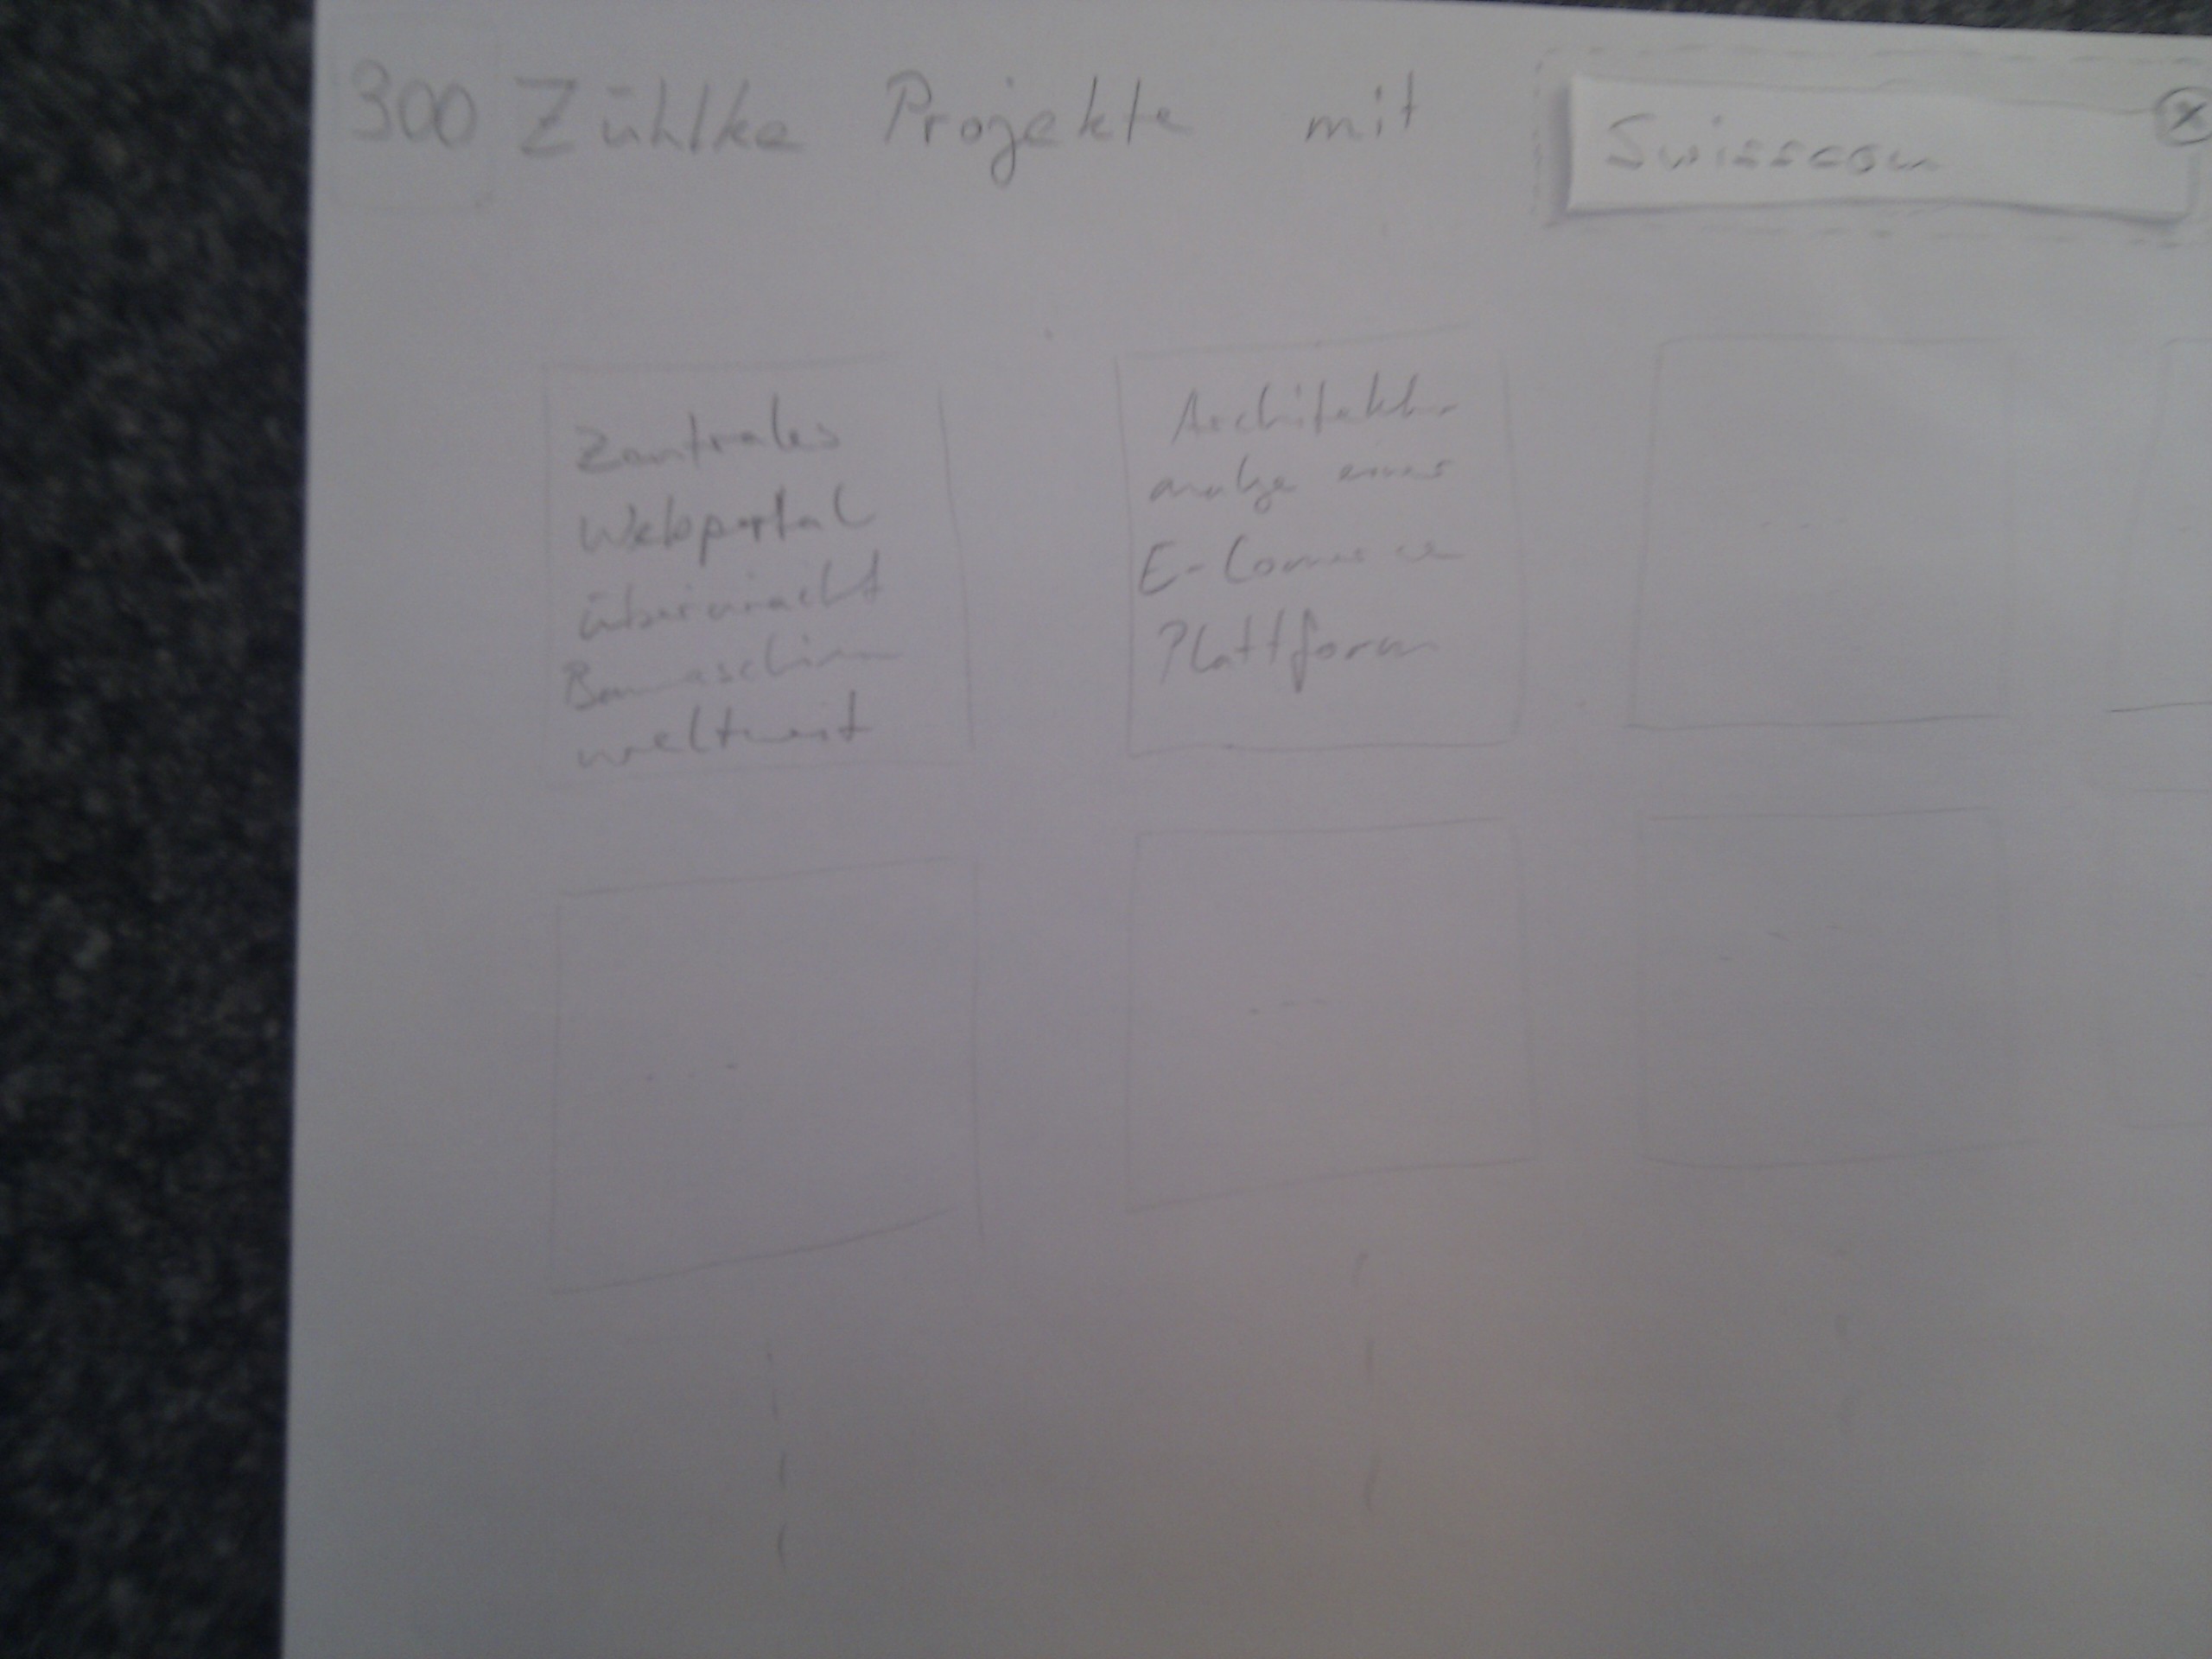 300 Zühlke Projekte mit Swisscom x
Zentrales
Webportal
überwacht
Baumaschinen
weltweit
Architektur
analyse einer
E-Commerce
Plattform